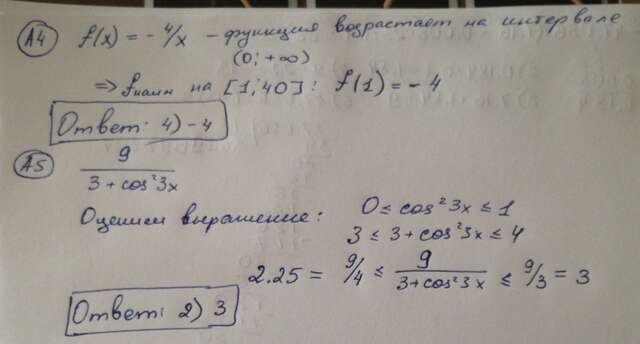 А4 f(x) = - 4/x - функция возрастает на интервале
(0; +∞)
⇒ fнаим на [1; 40]: f(1) = - 4
Ответ: 4) - 4
А5 9/(3 + cos²3x)
Оценим выражение: 0 ≤ cos²3x ≤ 1
3 ≤ 3 + cos²3x ≤ 4
2.25 = 9/4 ≤ 9/(3 + cos²3x) ≤ 9/3 = 3
Ответ: 2) 3